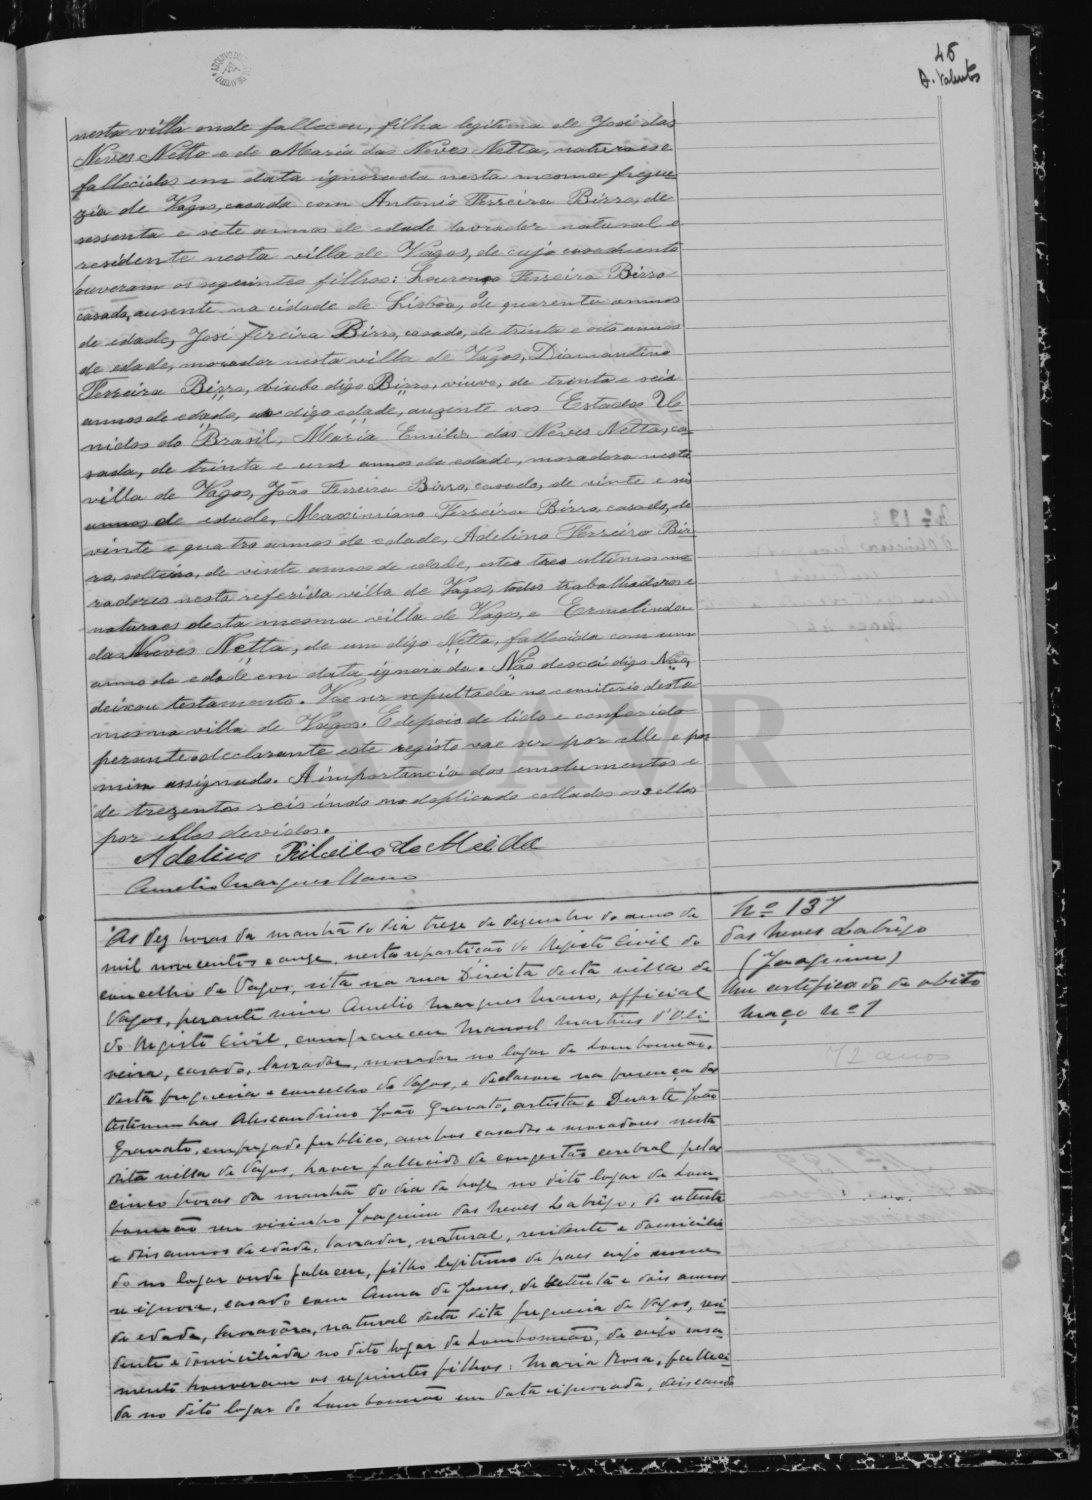 45
A. Valentos
nesta villa onde falleceu, filha legitima de José das
Neves Netto e de Maria das Neves Netta, naturaes e
fallecidos em data ignorada nesta mesma fregue
zia de Vagos, casada com Antonio Ferreira Birro, de
sessenta e sete annos de edade lavrador natural e
residente nesta villa de Vagos, de cujo casamento
houveram os seguintes filhos: Lourenço Ferreira Birro
casado, ausente na cidade de Lisboa, de quarenta annos
de edade, José Ferreira Birro, casado, de trinta e oito annos
de edade, morador nesta villa de Vagos, Diamantino
Ferreira Birro, digo Birro, viuvo, de trinta e seis
annos de edade, digo edade, auzente nos Estados U
nidos do Brasil, Maria Emilia das Neves Netta, ca
sada, de trinta e um annos de edade, moradora nesta
villa de Vagos, João Ferreira Birro, casado, de vinte e seis
annos de edade, Maximiano Ferreira Birro, casado, de
vinte e quatro annos de edade, Adelino Ferreira Bir
ro, solteiro, de vinte annos de edade, estes tres ultimos mo
radores nesta referida villa de Vagos, todos trabalhadores e
naturaes desta mesma villa de Vagos, e Ermelinda
das Neves Netta, de um digo Netta, fallecida com um
anno de edade em data ignorada. Não descei digo Não,
deixou testamento. Vae ser sepultada no cemiterio desta
mesma villa de Vagos. E depois de lido e conferido
perante o declarante este registo vae ser por elle e por
mim assignado. A importancia dos emolumentos é
de trezentos reis indo no duplicado collados os sellos
por elles devidos.
Adelino Ribeiro de
Amelio Marques Mano
Ás dez horas da manhã do dia treze de dezembro do anno de
mil novecentos e onze, nesta repartição do Registo Civil do
concelho de Vagos, sita na rua Direita desta villa de
Vagos, perante mim Amelio Marques Mano, official
do Registo Civil, compareceu Manoel Martins d'Oli
veira, casado, lavrador, morador no logar de Lombomeão,
desta freguezia e concelho de Vagos, e declarou na presença das
testemunhas Alexandrino João Gravato, artista e Duarte João
Gravato, empregado publico, ambos casados e moradores nesta
dita villa de Vagos, haver fallecido de congestão cerebral pelas
cinco horas da manhã do dia de hoje no dito logar de Lom
bomeão seu visinho Joaquim das Neves Labrêgo, de setenta
e dois annos de edade, lavrador, natural, residente e domicilia
do no logar onde faleceu, filho legitimo de paes cujo nome
se ignora, casado com Anna de Jesus, de setenta e dois annos
de edade, lavradora, natural desta dita freguezia de Vagos, resi
dente e domiciliada no dito logar de Lombomeão, de cujo casa
mento houveram os seguintes filhos: Maria Rosa, falleci
da no dito logar de Lombomeão em data ignorada, deixando
Nº 137
das Neves Labrêgo
(Joaquim)
Um certificado de obito
Maço nº 1
72 annos
ADAVR